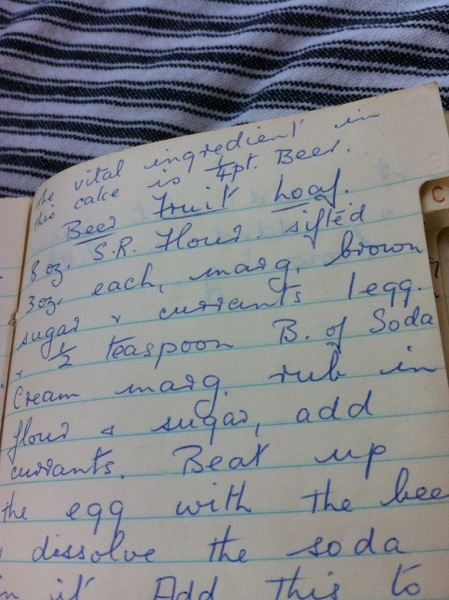 The vital ingredient in
this cake is 1/4 pt. Beer.
Beer Fruit Loaf.
8 oz. S.R. Flour. sifted
3 oz. each, marg, brown
sugar & currants 1 egg.
+ 1/2 teaspoon B. of Soda
Cream marg. rub in
flour & sugar, add
currants. Beat up
the egg with the bee
dissolve the soda
in it. Add this to
C